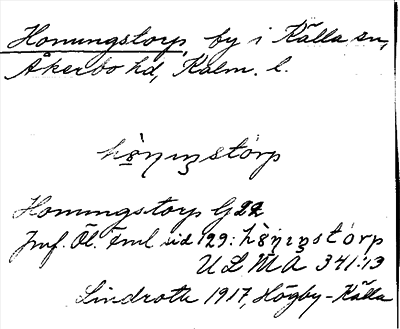 Honungstorp, by i Källa sn,
Åkerbo hd, Kalm. l.
hö̀ŋıŋstórp
Honungstorp G 22
Jmf. Öl. Fml sid 129: hö̀ŋıŋstórp
ULMA 341:13
Lindroth 1917, Högby-Källa